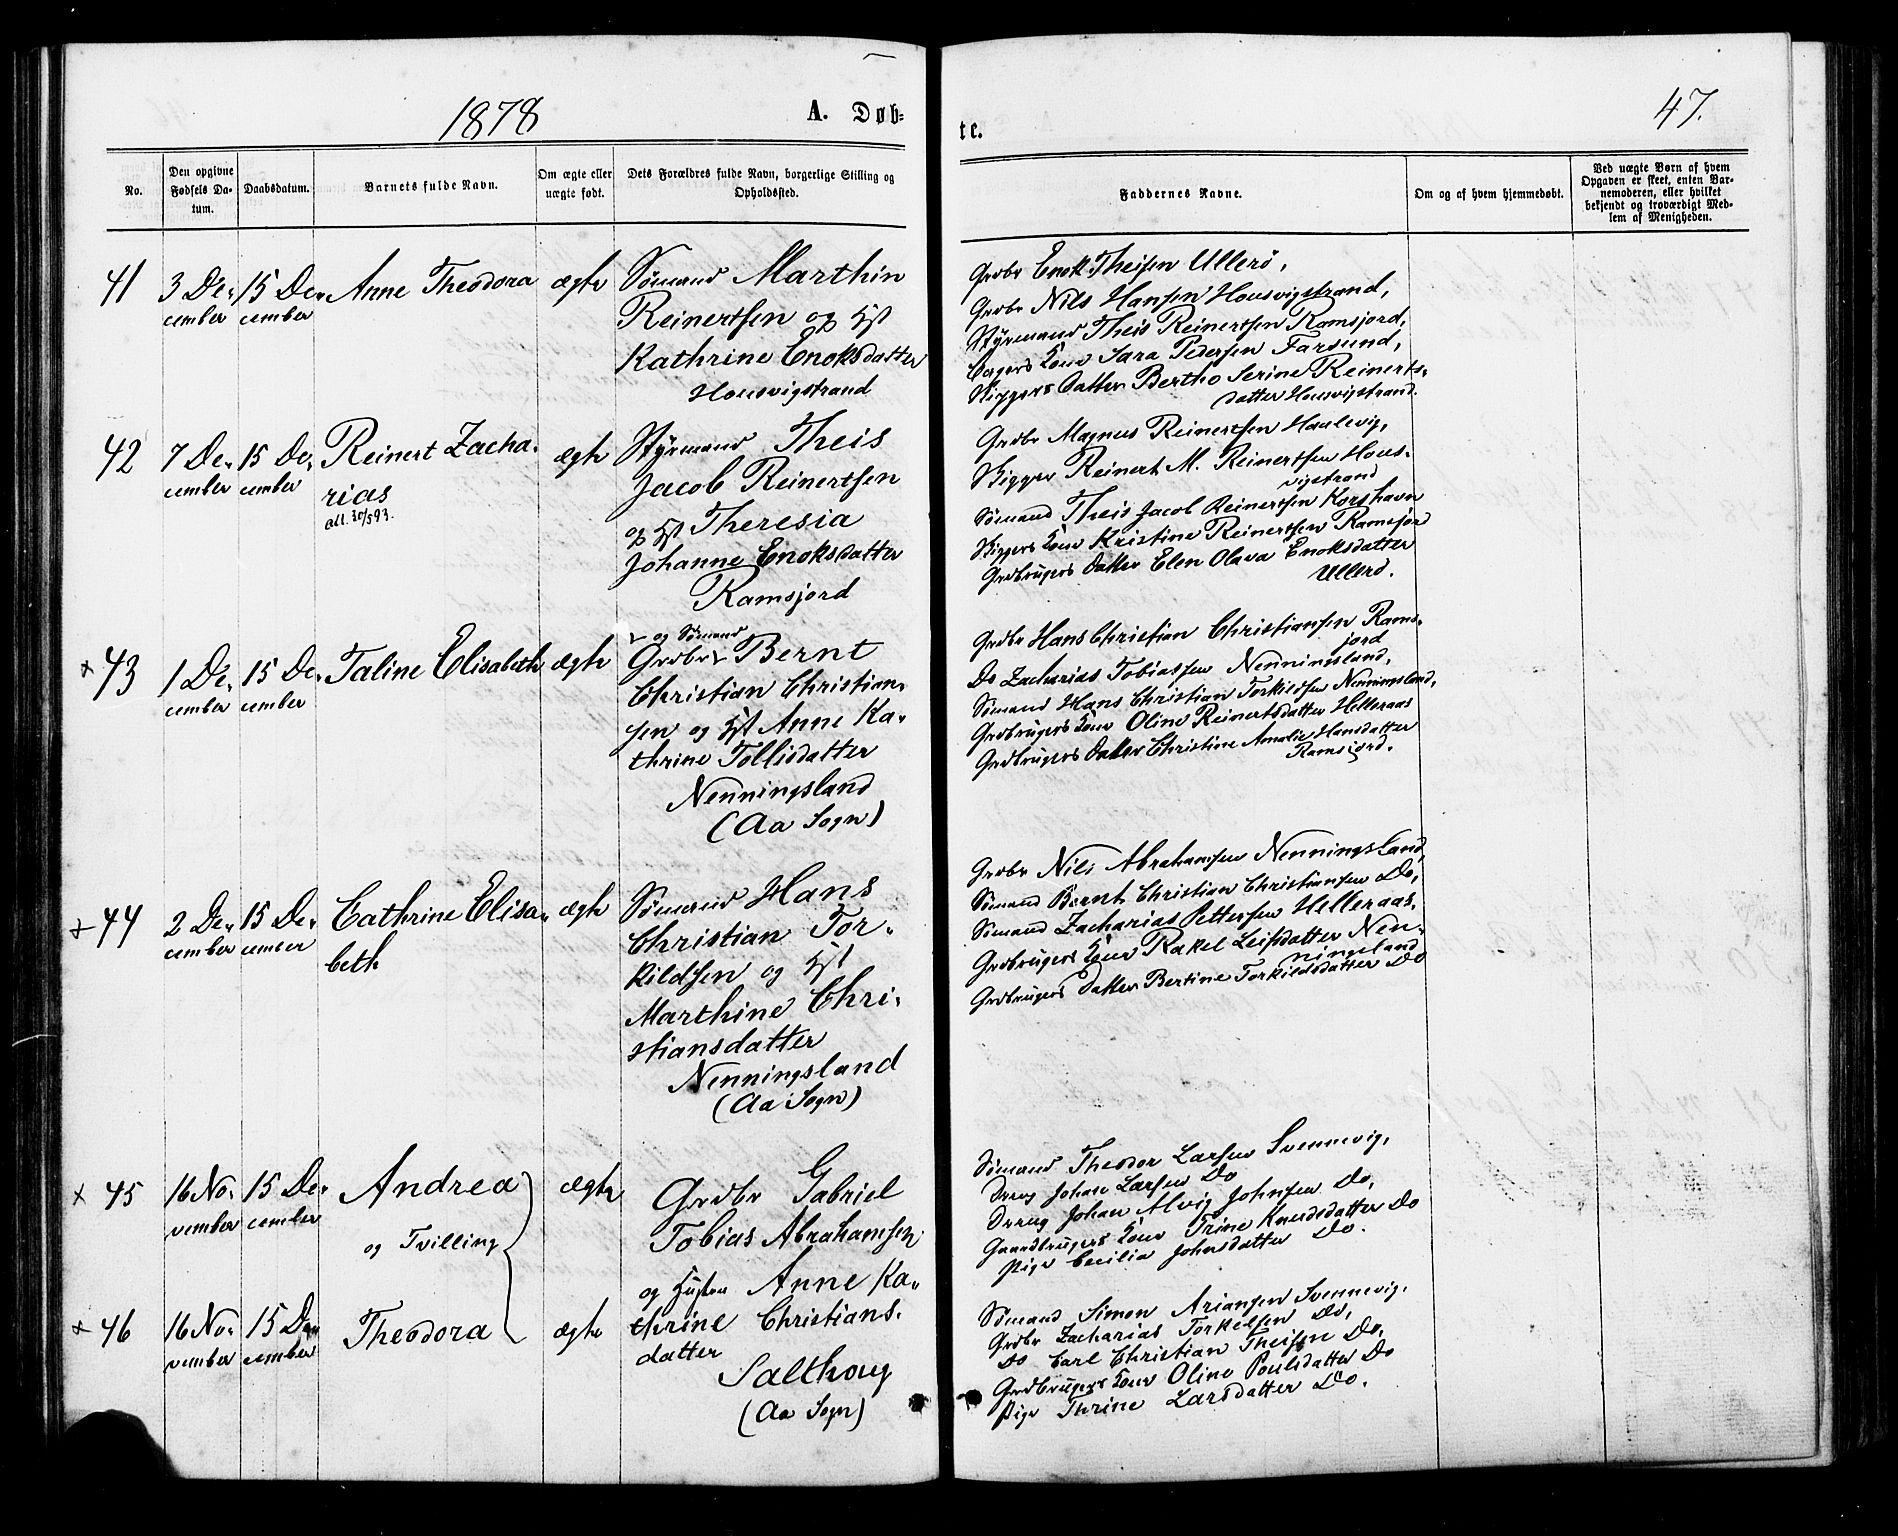 1878
A. Døb=
te.
47.
No.
Den opgivne Fødsels Da-
tum.
Daabsdatum.
Barnets fulde Navn.
Om ægte eller
uægte født.
Dets Forældres fulde Navn, borgerlige Stilling og
Opholdssted.
Faddernes Navne.
Om og af hvem hjemmedøbt.
Ved uægte Børn af hvem
Opgaven er skeet, enten Bar-
nemoderen, eller hvilket
bekjendt og troværdigt Med-
lem af Menigheden.
41
3 De-
cember
15 De-
cember
Anne Theodora
ægte
Sømand Marthin
Reinertsen og Hst
Kathrine Enoksdatter
Housvigstrand
Grdbr Enok Theisen Ullerø,
Grdbr Nils Hansen Housvigstrand,
Styrmand Theis Reinertsen Ramsjord,
Kone Sara Pedersen Farsund,
Skippers Datter Bertho Serine Reinerts-
datter Housvigstrand.
42
7 De-
cember
15 De-
cember
Reinert Zacha-
rias
att. 30/5 93.
ægte
Styrmand Theis
Jacob Reinertsen
og Hst Theresia
Johanne Enoksdatter
Ramsjord
Grdbr Magnus Reinertsen Haulevig,
Skipper Reinert M. Reinertsen Hous-
vigstrand
Sømand Theis Jacob Reinertsen Korshavn
Skippers Kone Kristine Reinertsen Ramsjor
Grdbrugers Datter Elen Olava Enoksdatter
Ullerø.
x 43
1 De-
cember
15 De-
cember
Taline Elisabeth
ægte
og Sømand
Grdbr Bernt
Christian Christian-
sen og Hst Anne Ka-
thrine Tollisdatter
Nenningsland
(Aa Sogn)
Grdbr Hans Christian Christiansen Rams-
jord
Do Zacharias Tobiassen Nenningsland,
Sømand Hans Christian Torkildsen Nenningsland,
Grdbrugers Kone Oline Reinertsdatter Helleraas
Grdbrugers Datter Christine Amalie Hansdatter
Ramsjord.
x 44
2 De-
cember
15 De-
cember
Cathrine Elisa-
beth
ægte
Sømand Hans
Christian Tor-
kildsen og Hst
Marthine Chri-
stiansdatter
Nenningsland
(Aa Sogn)
Grdbr Nils Abrahamsen Nenningsland,
Sømand Bernt Christian Christiansen Do,
Sømand Zacharias Pettersen Helleraas,
Grdbrugers Kone Rakel Leifsdatter Nen-
ningsland
Grdbrugers Datter Bertine Torkildsdatter Do
x 45
16 No-
vember
15 De-
cember
Andrea
og Tvilling
ægte
Grdbr Gabriel
Tobias Abrahamsen
og Hustru Anne Ka-
thrine Christians-
datter
Salthoug
(Aa Sogn)
Sømand Theodor Larsen Svennevig,
Dreng Johan Larsen Do
Dreng Johan Alvig Johnsen Do,
Gaardbrugers Kone Trine Knudsdatter Do
Pige Cecilia Johnsdatter Do.
x 46
16 No-
vember
15 De-
cember
Theodora
ægte
Sømand Simon Ariansen Svennevig,
Grdbr Zacharias Torkelsen Do,
Do Carl Christian Theisen Do,
Grdbrugers Kone Oline Poulsdatter Do
Pige Thrine Larsdatter Do.